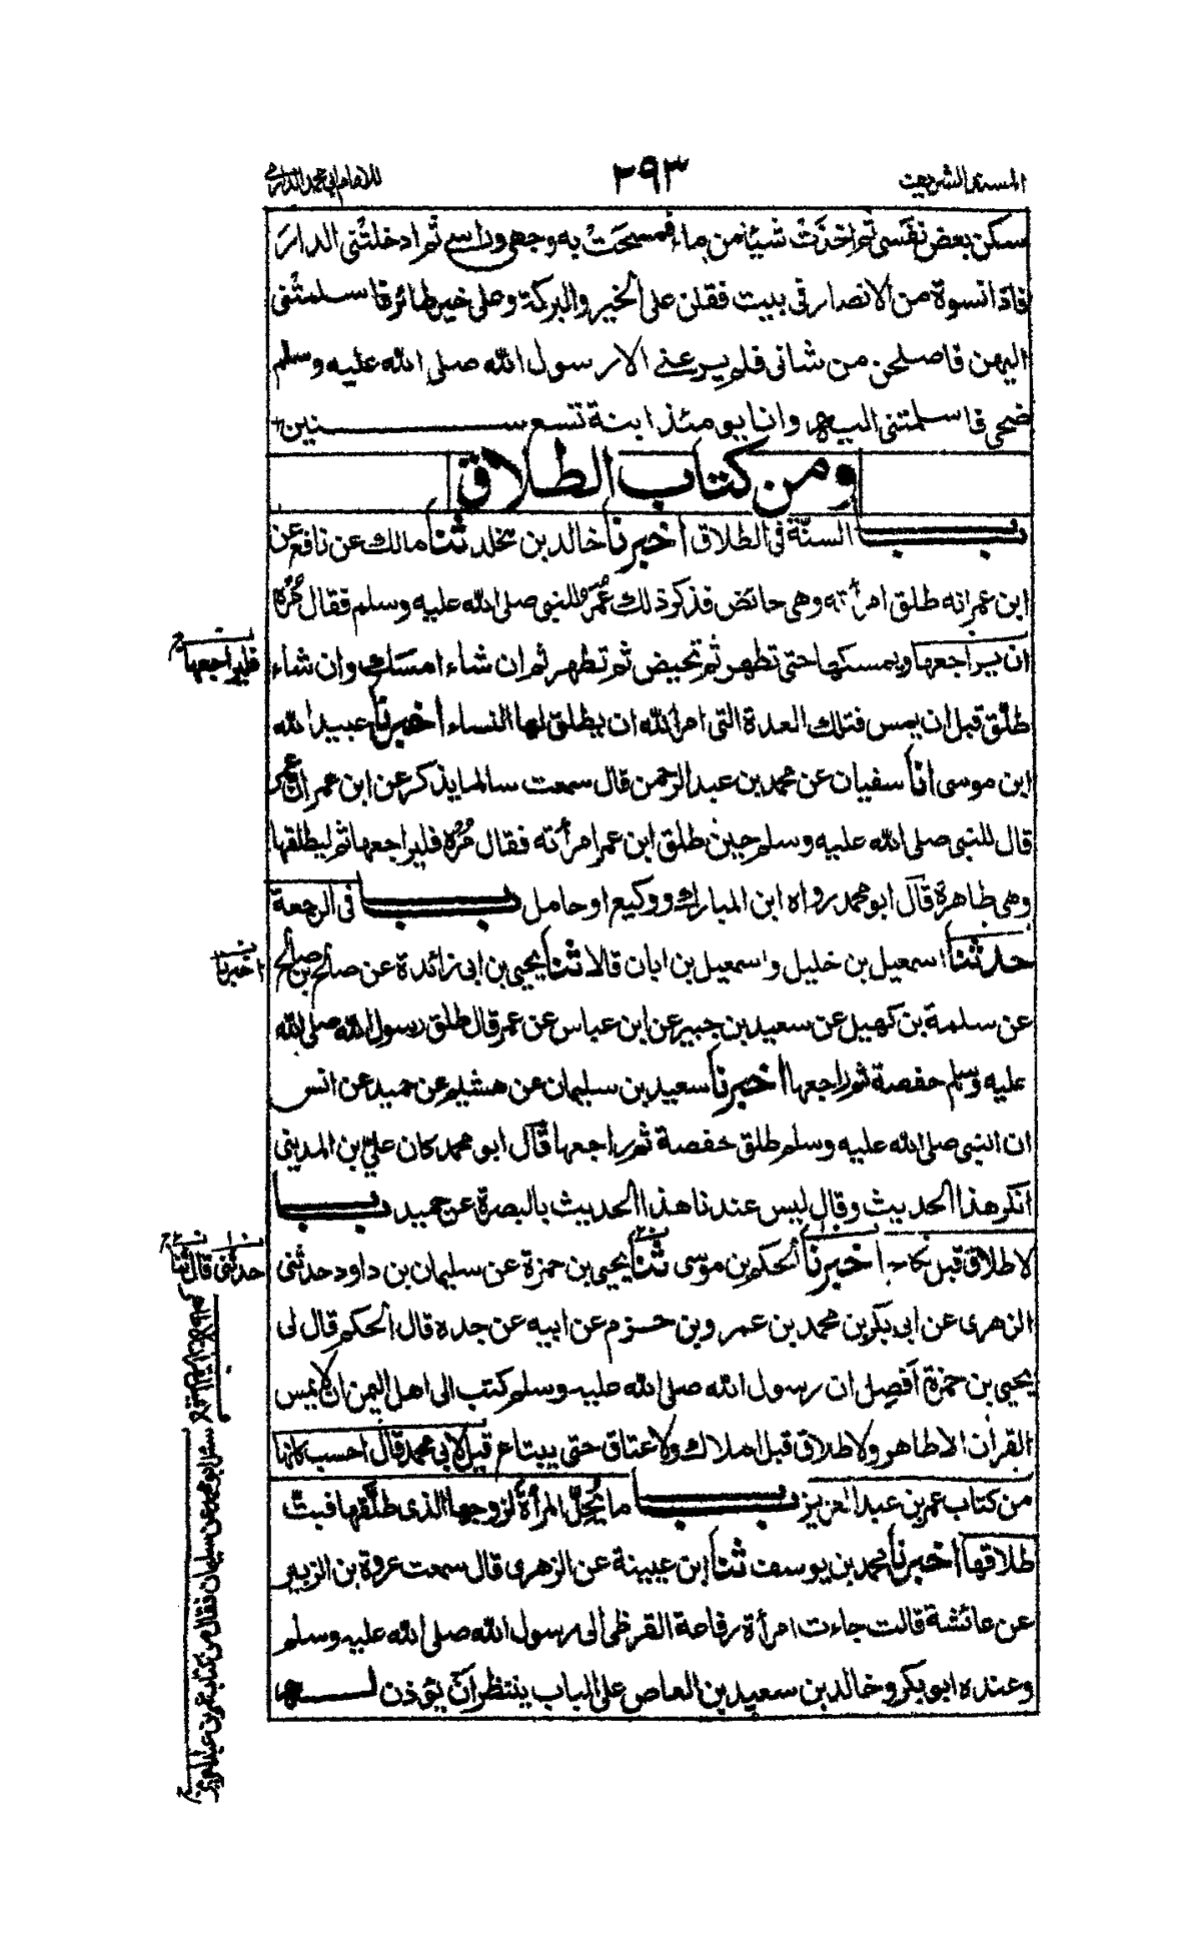 المسند الشريف
٢٩٣
للامام ابي محمد الدارمي
سكن بعض نفسى ثم اخذت شيئا من ماء فمسحت به وجهى وراسى ثم ادخلتنى الدار
فاذا نسوة من الانصار فى بيت فقلن على الخير والبركة وعلى خير طائر فاسلمتنى
اليهن فاصلحن من شانى فلم يرعنى الا رسول الله صلى الله عليه وسلم
ضحى فاسلمتنى اليه وانا يومئذ ابنة تسع سنين
ومن كتاب الطلاق
باب السنّة فى الطلاق اخبرنا خالد بن مخلد ثنا مالك عن نافع عن
ابن عمر انه طلق امرأته وهى حائض فذكر ذلك عُمَرُ للنبى صلى الله عليه وسلم فقال مُرْهُ
ان يراجعها ويمسكها حتى تطهر ثم تحيض ثم تطهر ثم ان شاء امسك وان شاء
طلّق قبل ان يمس فتلك العدة التى امر الله ان يطلق لها النساء اخبرنا عبيد الله
ابن موسى انا سفيان عن محمد بن عبد الرحمن قال سمعت سالما يذكر عن ابن عمر ان عمر
قال للنبى صلى الله عليه وسلم حين طلق ابن عمر امرأته فقال مُرْهُ فليراجعها ثم ليطلقها
وهى طاهرة قال ابو محمد رواه ابن المبارك ووكيع او حامل باب فى الرجعة
حدثنا اسمعيل بن خليل واسمعيل بن ابان قالا ثنا يحيى بن ابى زائدة عن صالح بن صالح
عن سلمة بن كهيل عن سعيد بن جبير عن ابن عباس عن عمر قال طلق رسول الله صلى الله
عليه وسلم حفصة ثم راجعها اخبرنا سعيد بن سليمان عن هشيم عن حميد عن انس
ان النبى صلى الله عليه وسلم طلق حفصة ثم راجعها قال ابو محمد كان علىّ بن المدينى
انكر هذا الحديث وقال ليس عندنا هذا الحديث بالبصرة عن حميد باب
لا طلاق قبل نكاح اخبرنا الحكم بن موسى ثنا يحيى بن حمزة عن سليمان بن داود حدثنى
الزهرى عن ابى بكر بن محمد بن عمرو بن حزم عن ابيه عن جده قال الحكم قال لى
يحيى بن حمزة اَفْصِل ان رسول الله صلى الله عليه وسلم كتب الى اهل اليمن ان لا يمس
القران الا طاهر ولا طلاق قبل املاك ولا عتاق حتى يبتاع قيل لابى محمد قال احسب كانها
من كتاب عمر بن عبد العزيز باب ما يُحِلُّ المرأة لزوجها الذى طلّقها فبتّ
طلاقها اخبرنا محمد بن يوسف ثنا ابن عيينة عن الزهرى قال سمعت عروة بن الزبير
عن عائشة قالت جاءت امرأة رفاعة القرظى الى رسول الله صلى الله عليه وسلم
وعنده ابو بكر وخالد بن سعيد بن العاص على الباب ينتظر ان يؤذن له
فليراجعها
اخبرنا
حدثنى قال ثنا
سئل ابو محمد عن سليمان فقال من كتاب عمر بن عبد العزيز